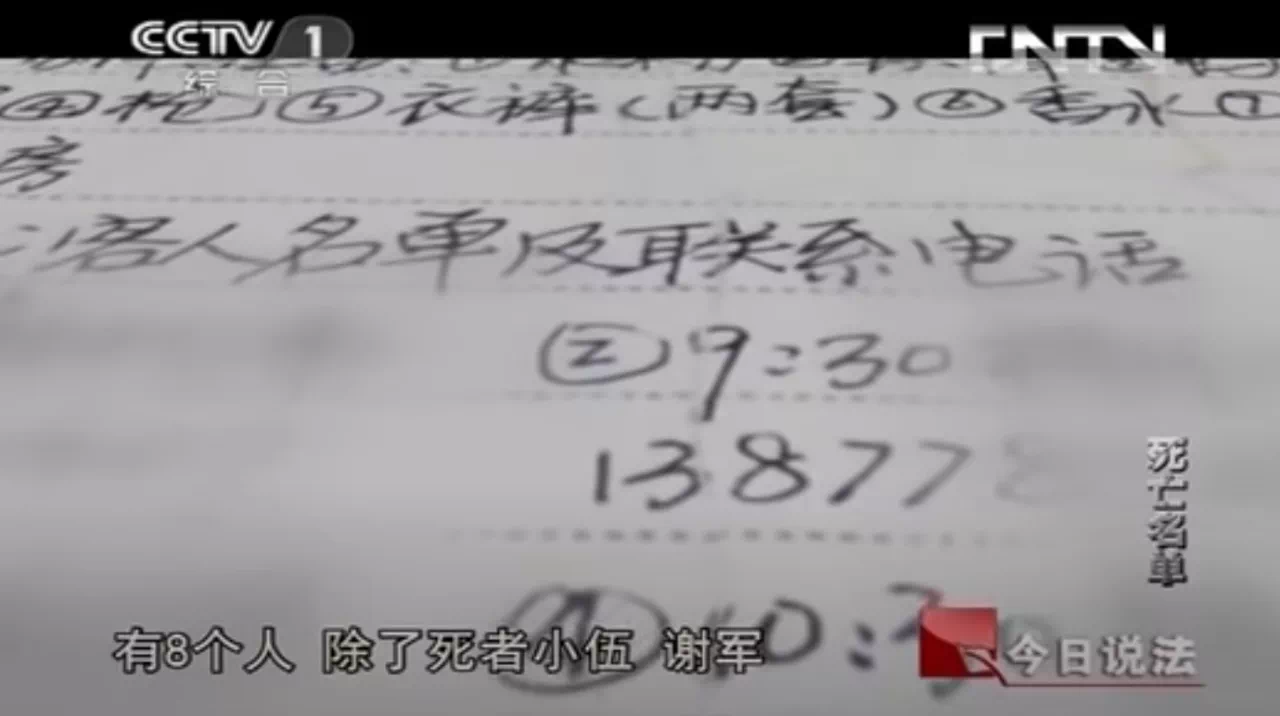 CCTV 1
综合
CNTV
④枪 ⑤衣裤(两套) ⑥香水 ⑦
房
客人名单及联系电话
② 9:30
13877
10:3
死亡名单
有8个人 除了死者小伍 谢军
今日说法